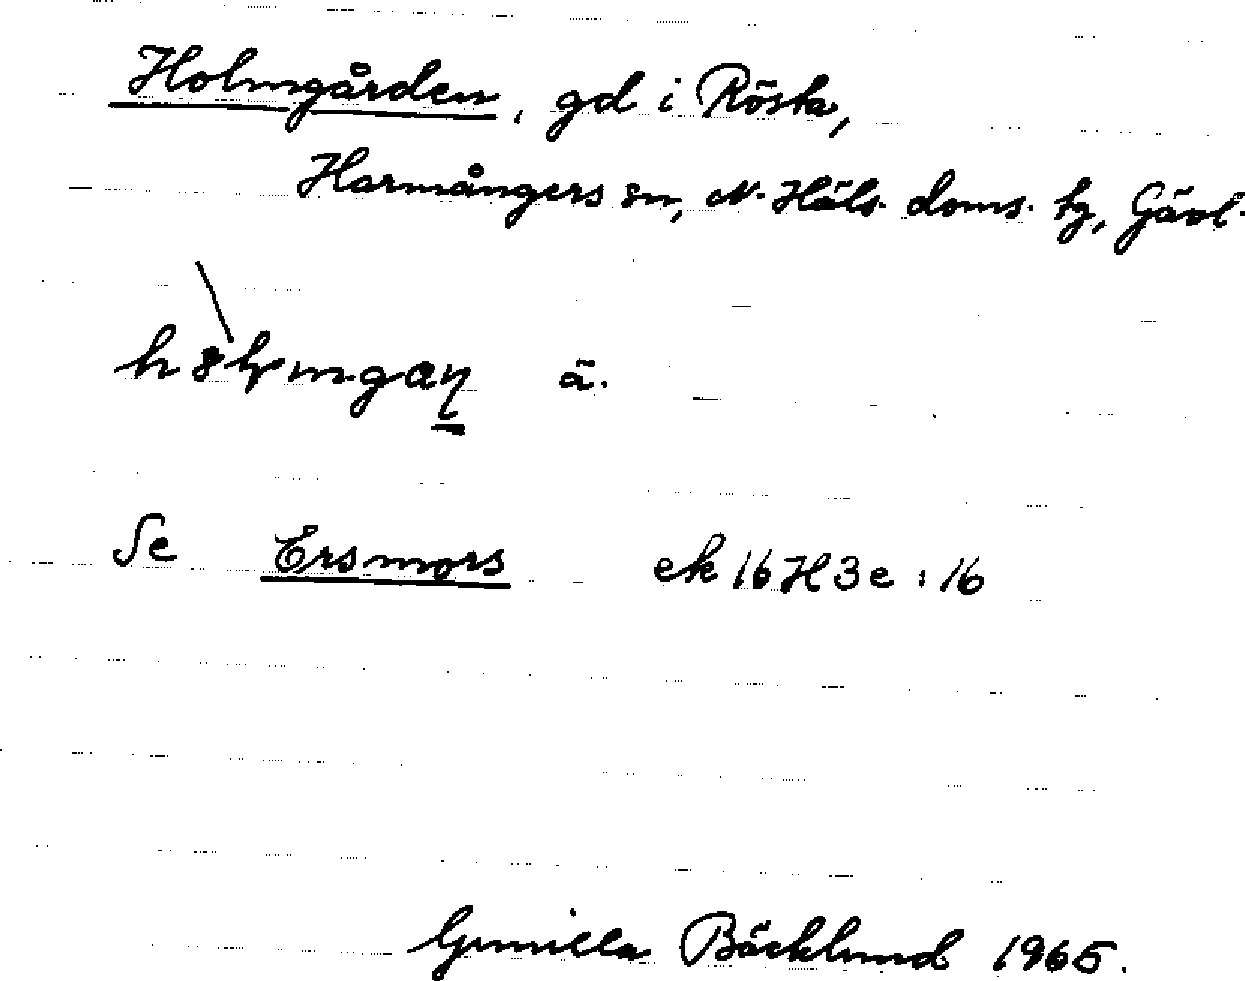 Holmgården, gd i Röste,
Harmångers sn, N. Häls. doms. hg, Gävl.
ä.
Se Ersmors ek 16H3e:16
Gunilla Bäcklund 1965.